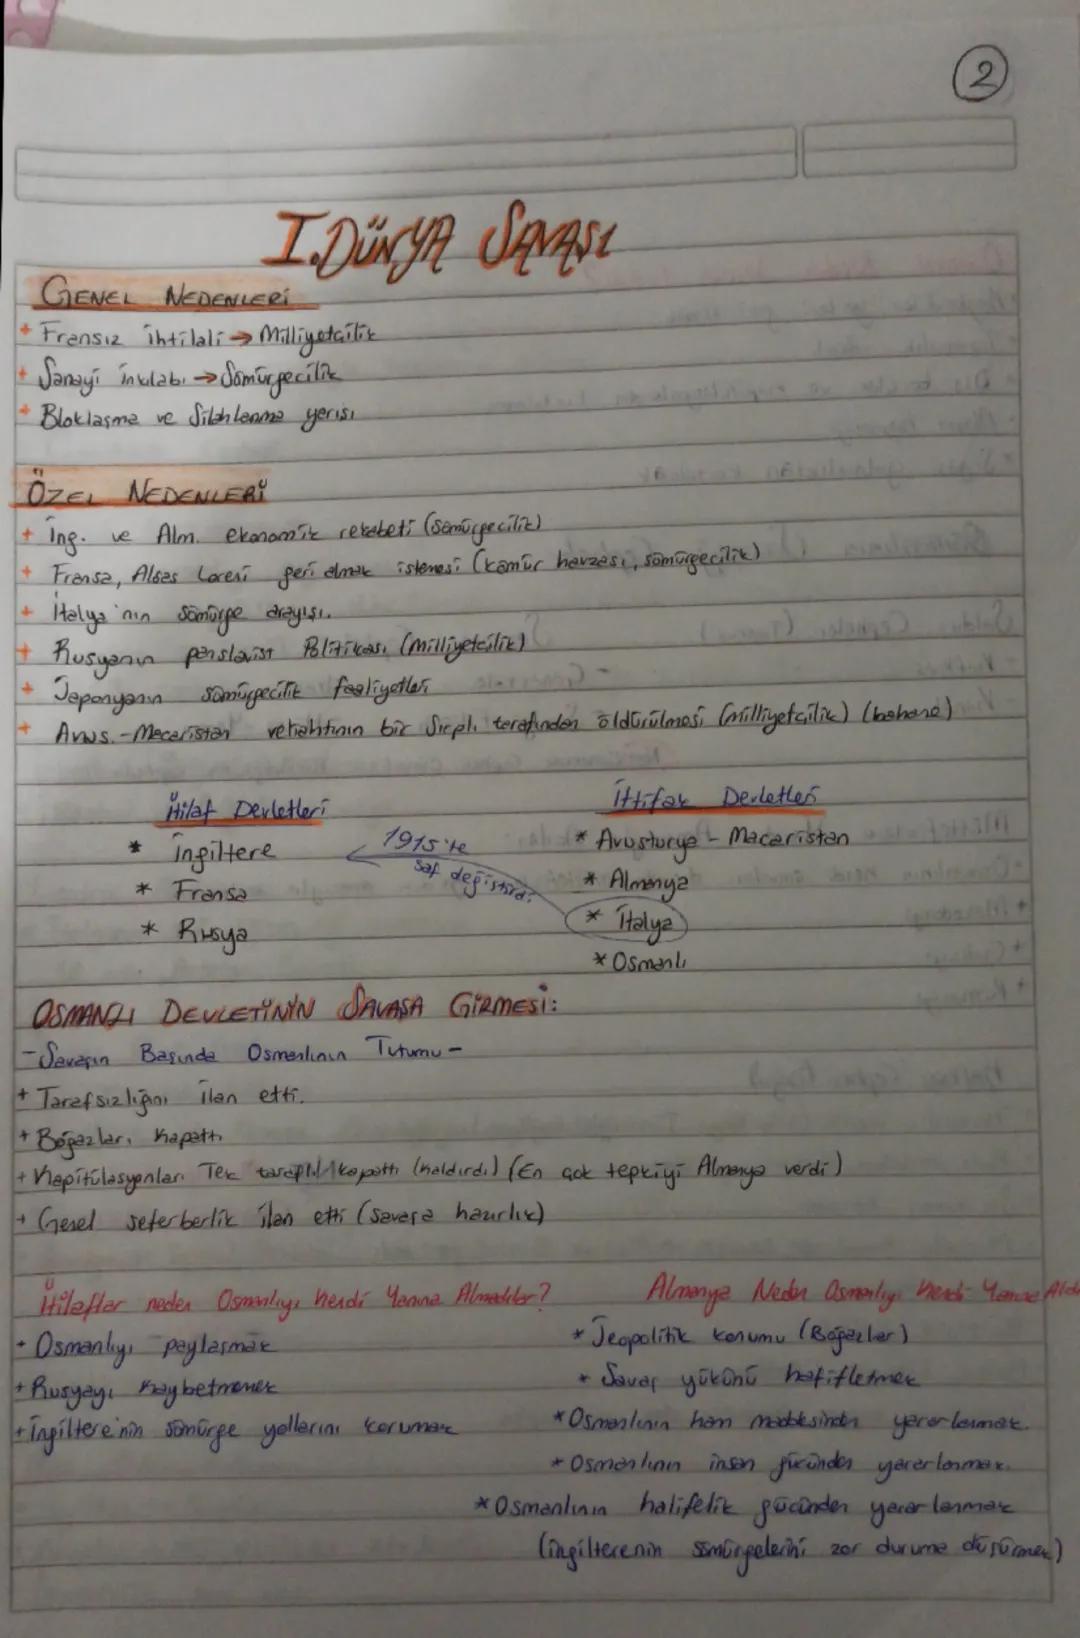 2
I. DÜNYA SAVAŞI
GENEL NEDENLERİ
+ Fransız ihtilali → Milliyetçilik
+ Sanayi inkılabı → Sömürgecilik
+ Bloklaşma ve Silahlanma yarışı
ÖZEL NEDENLERİ
+ İng. ve Alm. ekonomik rekabeti (sömürgecilik)
+ Fransa, Alsas Loreni geri almak istemesi (kömür havzası, sömürgecilik)
+ İtalya'nın sömürge arayışı.
+ Rusyanın panslavist Politikası (milliyetçilik)
+ Japonyanın sömürgecilik faaliyetleri
+ Avus.-Macaristan veliahtinin bir Sırplı tarafından öldürülmesi (milliyetçilik) (bahane)
İtilaf Devletleri
* İngiltere
* Fransa
* Rusya
1915'te
saf değiştirdi
İttifak Devletleri
* Avusturya - Macaristan
* Almanya
* İtalya
* Osmanlı
OSMANLI DEVLETİNİN SAVAŞA GİRMESİ:
- Savaşın Başında Osmanlının Tutumu -
+ Tarafsızlığını ilan etti.
+ Boğazları Kapattı
+ Kapitülasyonları Tek taraflı kapattı (kaldırdı) (En çok tepkiyi Almanya verdi)
+ Genel seferberlik ilan etti (savaşa hazırlık)
İtilaflar neden Osmanlıyı kendi Yanına Almadılar?
+ Osmanlıyı paylaşmak
+ Rusyayı Kaybetmemek
+ İngiltere'nin sömürge yollarını korumak
Almanya Neden Osmanlıyı kendi Yanına Aldı
* Jeopolitik konumu (Boğazlar)
* Savaş yükünü hafifletmek
* Osmanlının ham maddesinden yararlanmak.
* Osmanlının insan gücünden yararlanmak.
* Osmanlının halifelik gücünden yararlanmak
(ingilterenin sömürgelerini zor duruma düşürmek)